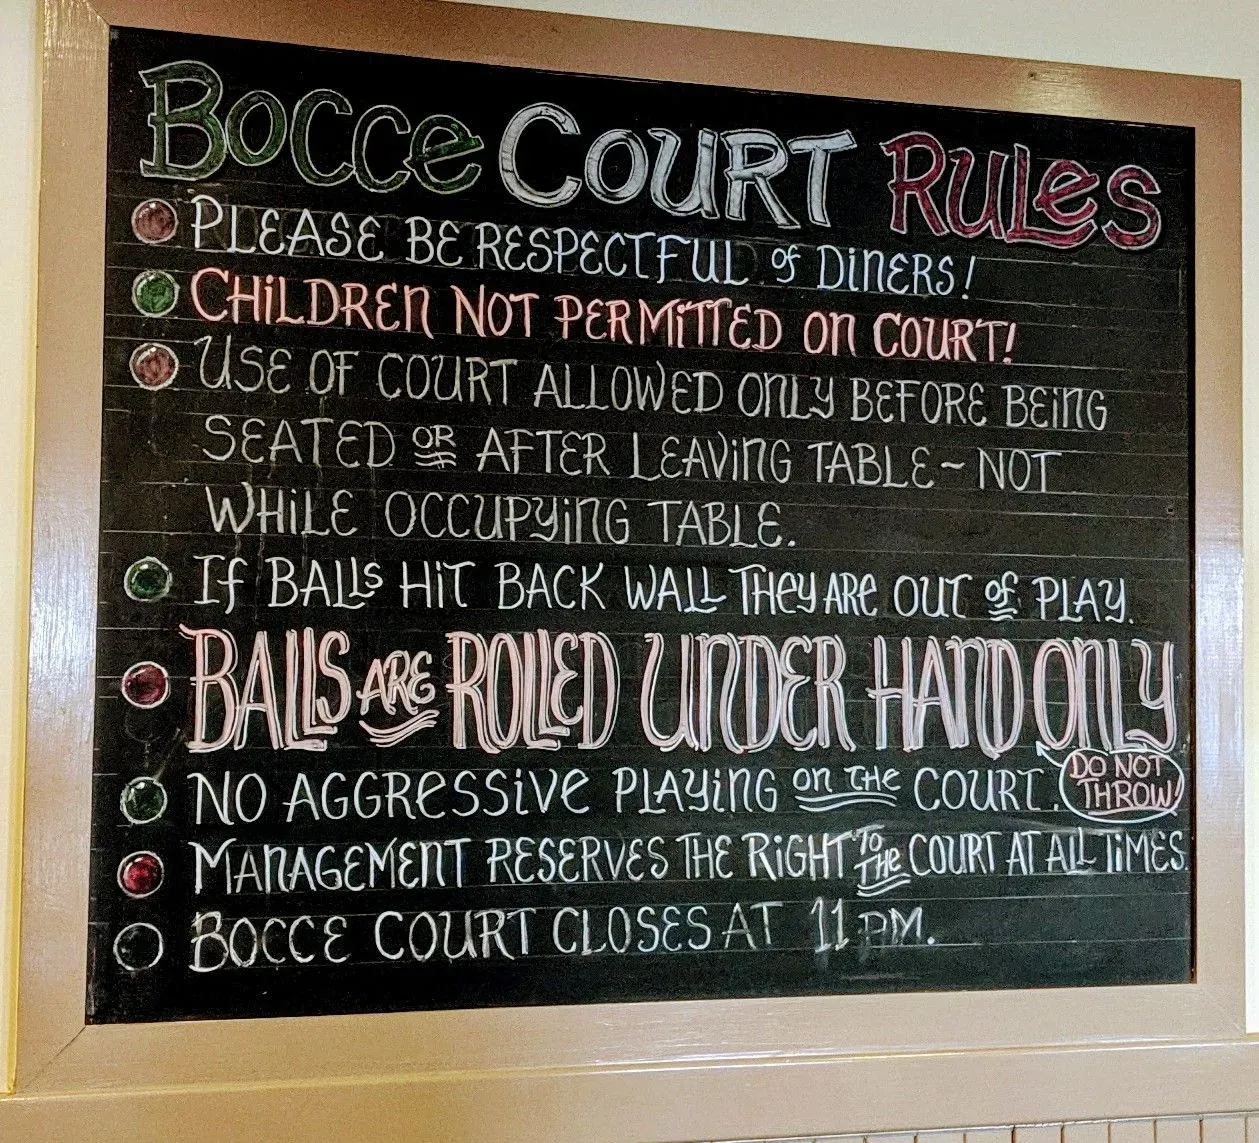 Bocce Court Rules
PLEASE BE RESPECTFUL of DINERS!
CHILDREN NOT PERMITTED ON COURT!
USE OF COURT ALLOWED ONLY BEFORE BEING
SEATED OR AFTER LEAVING TABLE - NOT
WHILE OCCUPYING TABLE.
If BALLS HIT BACK WALL THEY ARE OUT of PLAY.
BALLS ARE ROLLED UNDER HAND ONLY
DO NOT
THROW!
NO AGGRESSIVE PLAYING ON THE COURT.
MANAGEMENT RESERVES THE RIGHT TO THE COURT AT ALL TIMES.
BOCCE COURT CLOSES AT 11 PM.